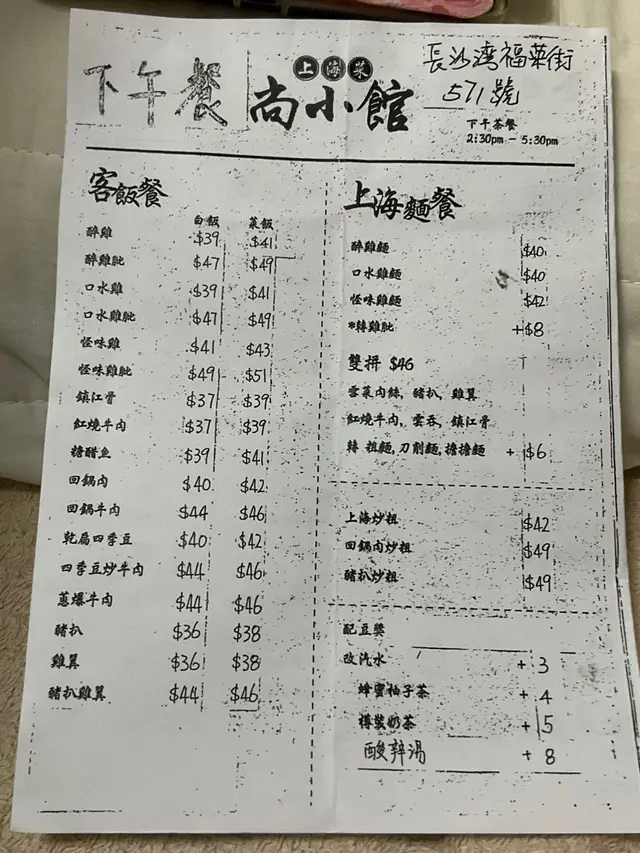 下午餐
上海菜
尚小館
長沙灣福榮街
571號
下午茶餐
2:30pm - 5:30pm
客飯餐
白飯 菜飯
醉雞 $39 $41
醉雞肶 $47 $49
口水雞 $39 $41
口水雞肶 $47 $49
怪味雞 $41 $43
怪味雞肶 $49 $51
鎮江骨 $37 $39
紅燒牛肉 $37 $39
糖醋魚 $39 $41
回鍋肉 $40 $42
回鍋牛肉 $44 $46
乾扁四季豆 $40 $42
四季豆炒牛肉 $44 $46
蔥爆牛肉 $44 $46
豬扒 $36 $38
雞翼 $36 $38
豬扒雞翼 $44 $46
上海麵餐
醉雞麵 $40
口水雞麵 $40
怪味雞麵 $42
*轉雞肶 +$8
雙拼 $46
雪菜肉絲, 豬扒, 雞翼
紅燒牛肉, 雲吞, 鎮江骨
轉 粗麵, 刀削麵, 擔擔麵 + $6
上海炒粗 $42
回鍋肉炒粗 $49
豬扒炒粗 $49
配豆漿
改汽水 + 3
蜂蜜柚子茶 + 4
樽裝奶茶 + 5
酸辣湯 + 8